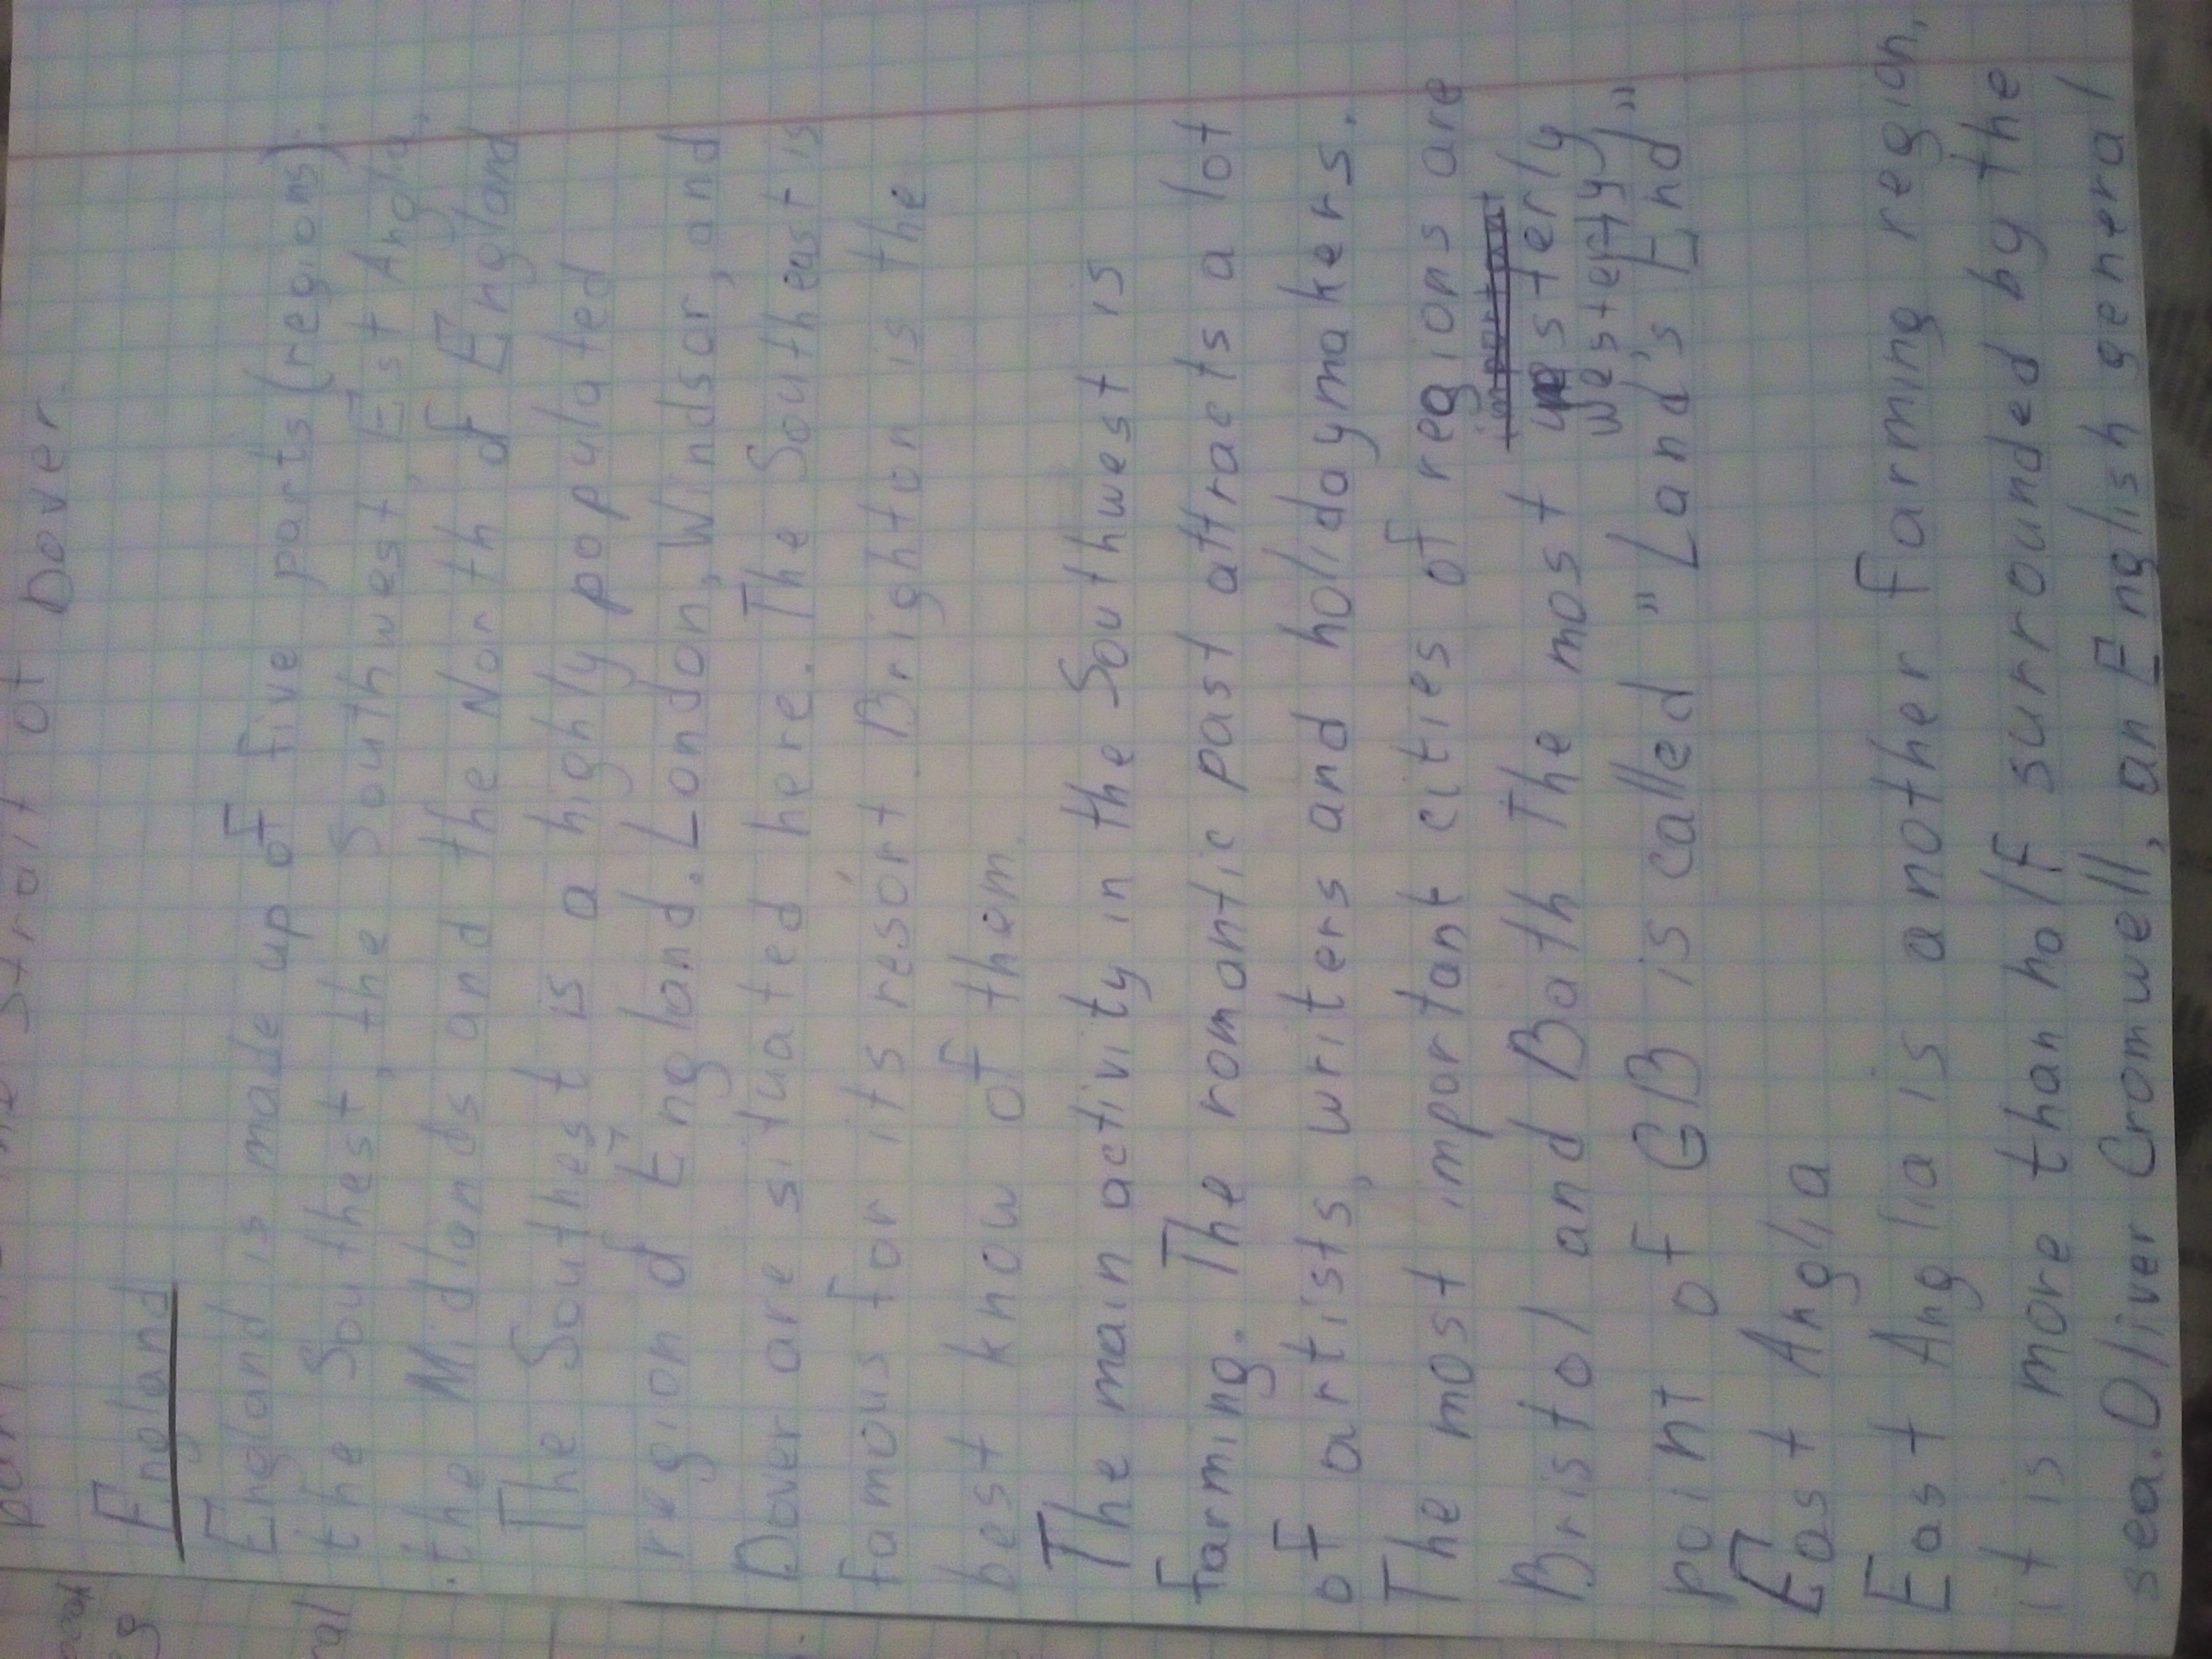 strait of Dover.
England
England is made up of five parts (regions).
the Southest, the Southwest, Est Anglia,
the Midlands and the North of England
The Southest is a highly populated
region of England. London, Windsor, and
Dover are situated here. The Southeast is
famous for its resort. Brighton is the
best know of them.
The main activity in the Southwest is
farming. The romantic past attracts a lot
of artists, writers and holidaymakers.
The most important cities of regions are
Bristol and Bath The most westerly
westerly
point of GB is called "Land's End"
East Anglia
East Anglia is another farming region,
it is more than half surrounded by the
sea. Oliver Cromwell, an English general